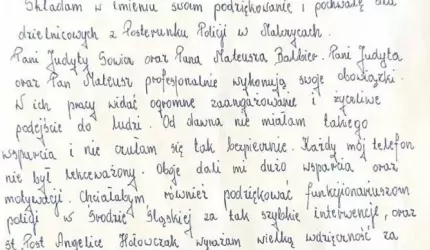 Składam w imieniu swoim podziękowanie i pochwałę dla
dzielnicowych z Posterunku Policji w Malczycach.
Pani Judyty Sowa oraz Pana Mateusza Balbier. Pani Judyta
oraz Pan Mateusz profesjonalnie wykonują swoje obowiązki.
W ich pracy widać ogromne zaangażowanie i życzliwe
podejście do ludzi. Od dawna nie miałam takiego
wsparcia i nie czułam się tak bezpiecznie. Każdy mój telefon
nie był lekceważony. Oboje dali mi dużo wsparcia oraz
motywacji. Chciałabym, również podziękować funkcjonariuszom
policji w Środzie Śląskiej za tak szybkie interwencje, oraz
st. Post Angelice Hołowczak wyrażam wielką wdzięczność za